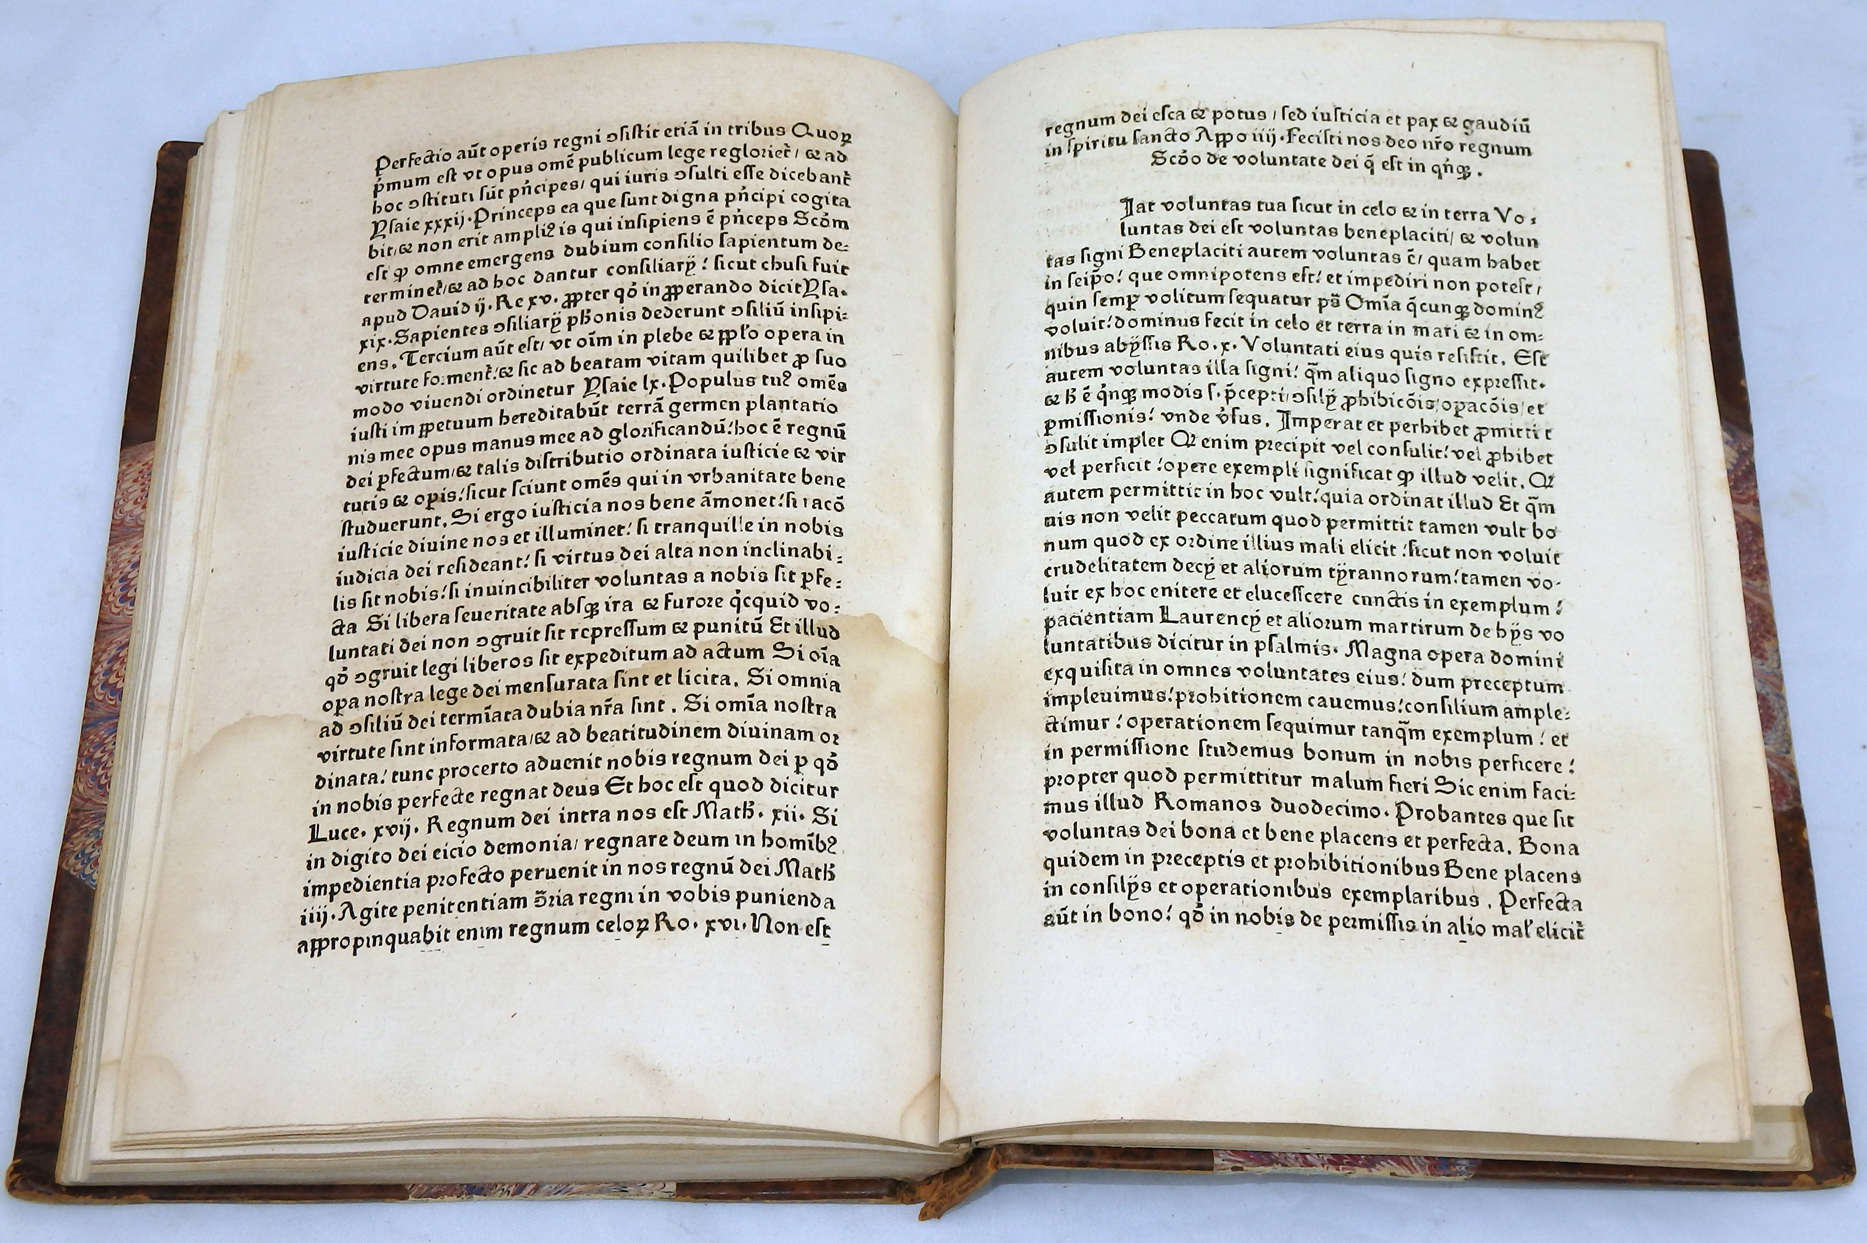 Perfectio aūt operis regni ↄsistit etiā in tribus Quoꝝ
p̄mum est vt opus omē publicum lege regloriet̄ / ⁊ ad
hoc ↄstituti sūt pn̄cipes / qui iuris ↄsulti esse dicebant̄
Ysaie xxxij. Princeps ea que sunt digna pn̄cipi cogita
bit/⁊ non erit ampliꝰ is qui insipiens ē pn̄ceps Scōm
est ꝙ omne emergens dubium consilio sapientum de⸗
terminet̄/⁊ ad hoc dantur consiliarÿ ! sicut chusi fuit
apud Dauid ij. Re xv. ꝓpter qō in ꝓperando dicit Ysa.
xix. Sapientes ↄsiliarÿ pħonis dederunt ↄsiliū insipi⸗
ens. Tercium aūt est/ vt oīm in plebe ⁊ ꝓpło opera in
virtute foment̄!⁊ sic ad beatam vitam quilibet ꝓ suo
modo viuendi ordinetur Ysaie lx. Populus tuꝰ omēs
iusti im ꝑpetuum hereditabūt terrā germen plantatio
nis mee opus manus mee ad glorificandū!hoc ē regnū
dei ꝑfectum/⁊ talis distributio ordinata iusticie ⁊ vir
tutis ⁊ opis!sicut sciunt omēs qui in vrbanitate bene
studuerunt. Si ergo iusticia nos bene āmonet!si racō
iusticie diuine nos et illuminet! si tranquille in nobis
iudicia dei resideant! si virtus dei alta non inclinabi⸗
lis sit nobis!si inuincibiliter voluntas a nobis sit ꝑfe⸗
cta Si libera seueritate absqꝫ ira ⁊ furore q̄cquid vo⸗
luntati dei non ↄgruit sit repressum ⁊ punitū Et illud
qō ↄgruit legi liberos sit expeditum ad actum Si oīa
oꝑa nostra lege dei mensurata sint et licita. Si omnia
ad ↄsiliū dei termīata dubia nr̄a sint . Si omīa nostra
virtute sint informata/⁊ ad beatitudinem diuinam or
dinata! tunc procerto aduenit nobis regnum dei ꝑ qō
in nobis perfecte regnat deus Et hoc est quod dicitur
Luce. xvij. Regnum dei intra nos est Math. xij. Si
in digito dei eicio demonia/ regnare deum in homībꝰ
impedientia profecto peruenit in nos regnū dei Matħ
iiij. Agite penitentiam ↄ̄ria regni in vobis punienda
apꝓpropinquabit enim regnum celoꝝ Ro. xvi. Non est
regnum dei esca ⁊ potus / sed iusticia et pax ⁊ gaudiū
in spiritu sancto Appo iiij. Fecisti nos deo nr̄o regnum
Scōo de voluntate dei q̄ est in qn̄qꝫ .
Iat voluntas tua sicut in celo ⁊ in terra Vo⸗
luntas dei est voluntas beneplaciti/ ⁊ volun
tas signi Beneplaciti autem voluntas ē/ quam habet
in seip̄o! que omnipotens est! et impediri non potest/
quin semꝑ volitum sequatur ps̄ Omīa q̄cunqꝫ dominꝰ
voluit!dominus fecit in celo et terra in mari ⁊ in om⸗
nibus abÿssis Ro. x. Voluntati eius quis resistit. Est
autem voluntas illa signi! q̄m aliquo signo expressit.
⁊ ħ ē q̄nqꝫ modis s. p̄cepti/ ↄsilÿ ꝓhibicōis/oꝑacōis/et
ꝑmissionis! vnde v̓sus. Imperat et perhibet ꝓmittit
ↄsulit implet Qꝫ enim precipit vel consulit!vel ꝓhibet
vel perficit !opere exempli significat ꝙ illud velit. Qꝫ
autem permittit in hoc vult!quia ordinat illud Et q̄m
uis non velit peccatum quod permittit tamen vult bo
num quod ex ordine illius mali elicit !sicut non voluit
crudelitatem decÿ et aliorum tÿrannorum!tamen vo⸗
luit ex hoc enitere et elucescere cunctis in exemplum !
pacientiam Laurencÿ et aliorum martirum de hÿs vo
luntatibus dicitur in psalmis. Magna opera domini
exquisita in omnes voluntates eius! dum preceptum
impleuimus!prohibitionem cauemus!consilium ample⸗
ctimur !operationem sequimur tanq̄m exemplum ! et
in permissione studemus bonum in nobis perficere !
propter quod permittitur malum fieri Sic enim faci⸗
mus illud Romanos duodecimo. Probantes que sit
voluntas dei bona et bene placens et perfecta. Bona
quidem in preceptis et prohibitionibus Bene placens
in consilÿs et operationibus exemplaribus . Perfecta
aūt in bono! qō in nobis de permissis in alio mał elicit̄